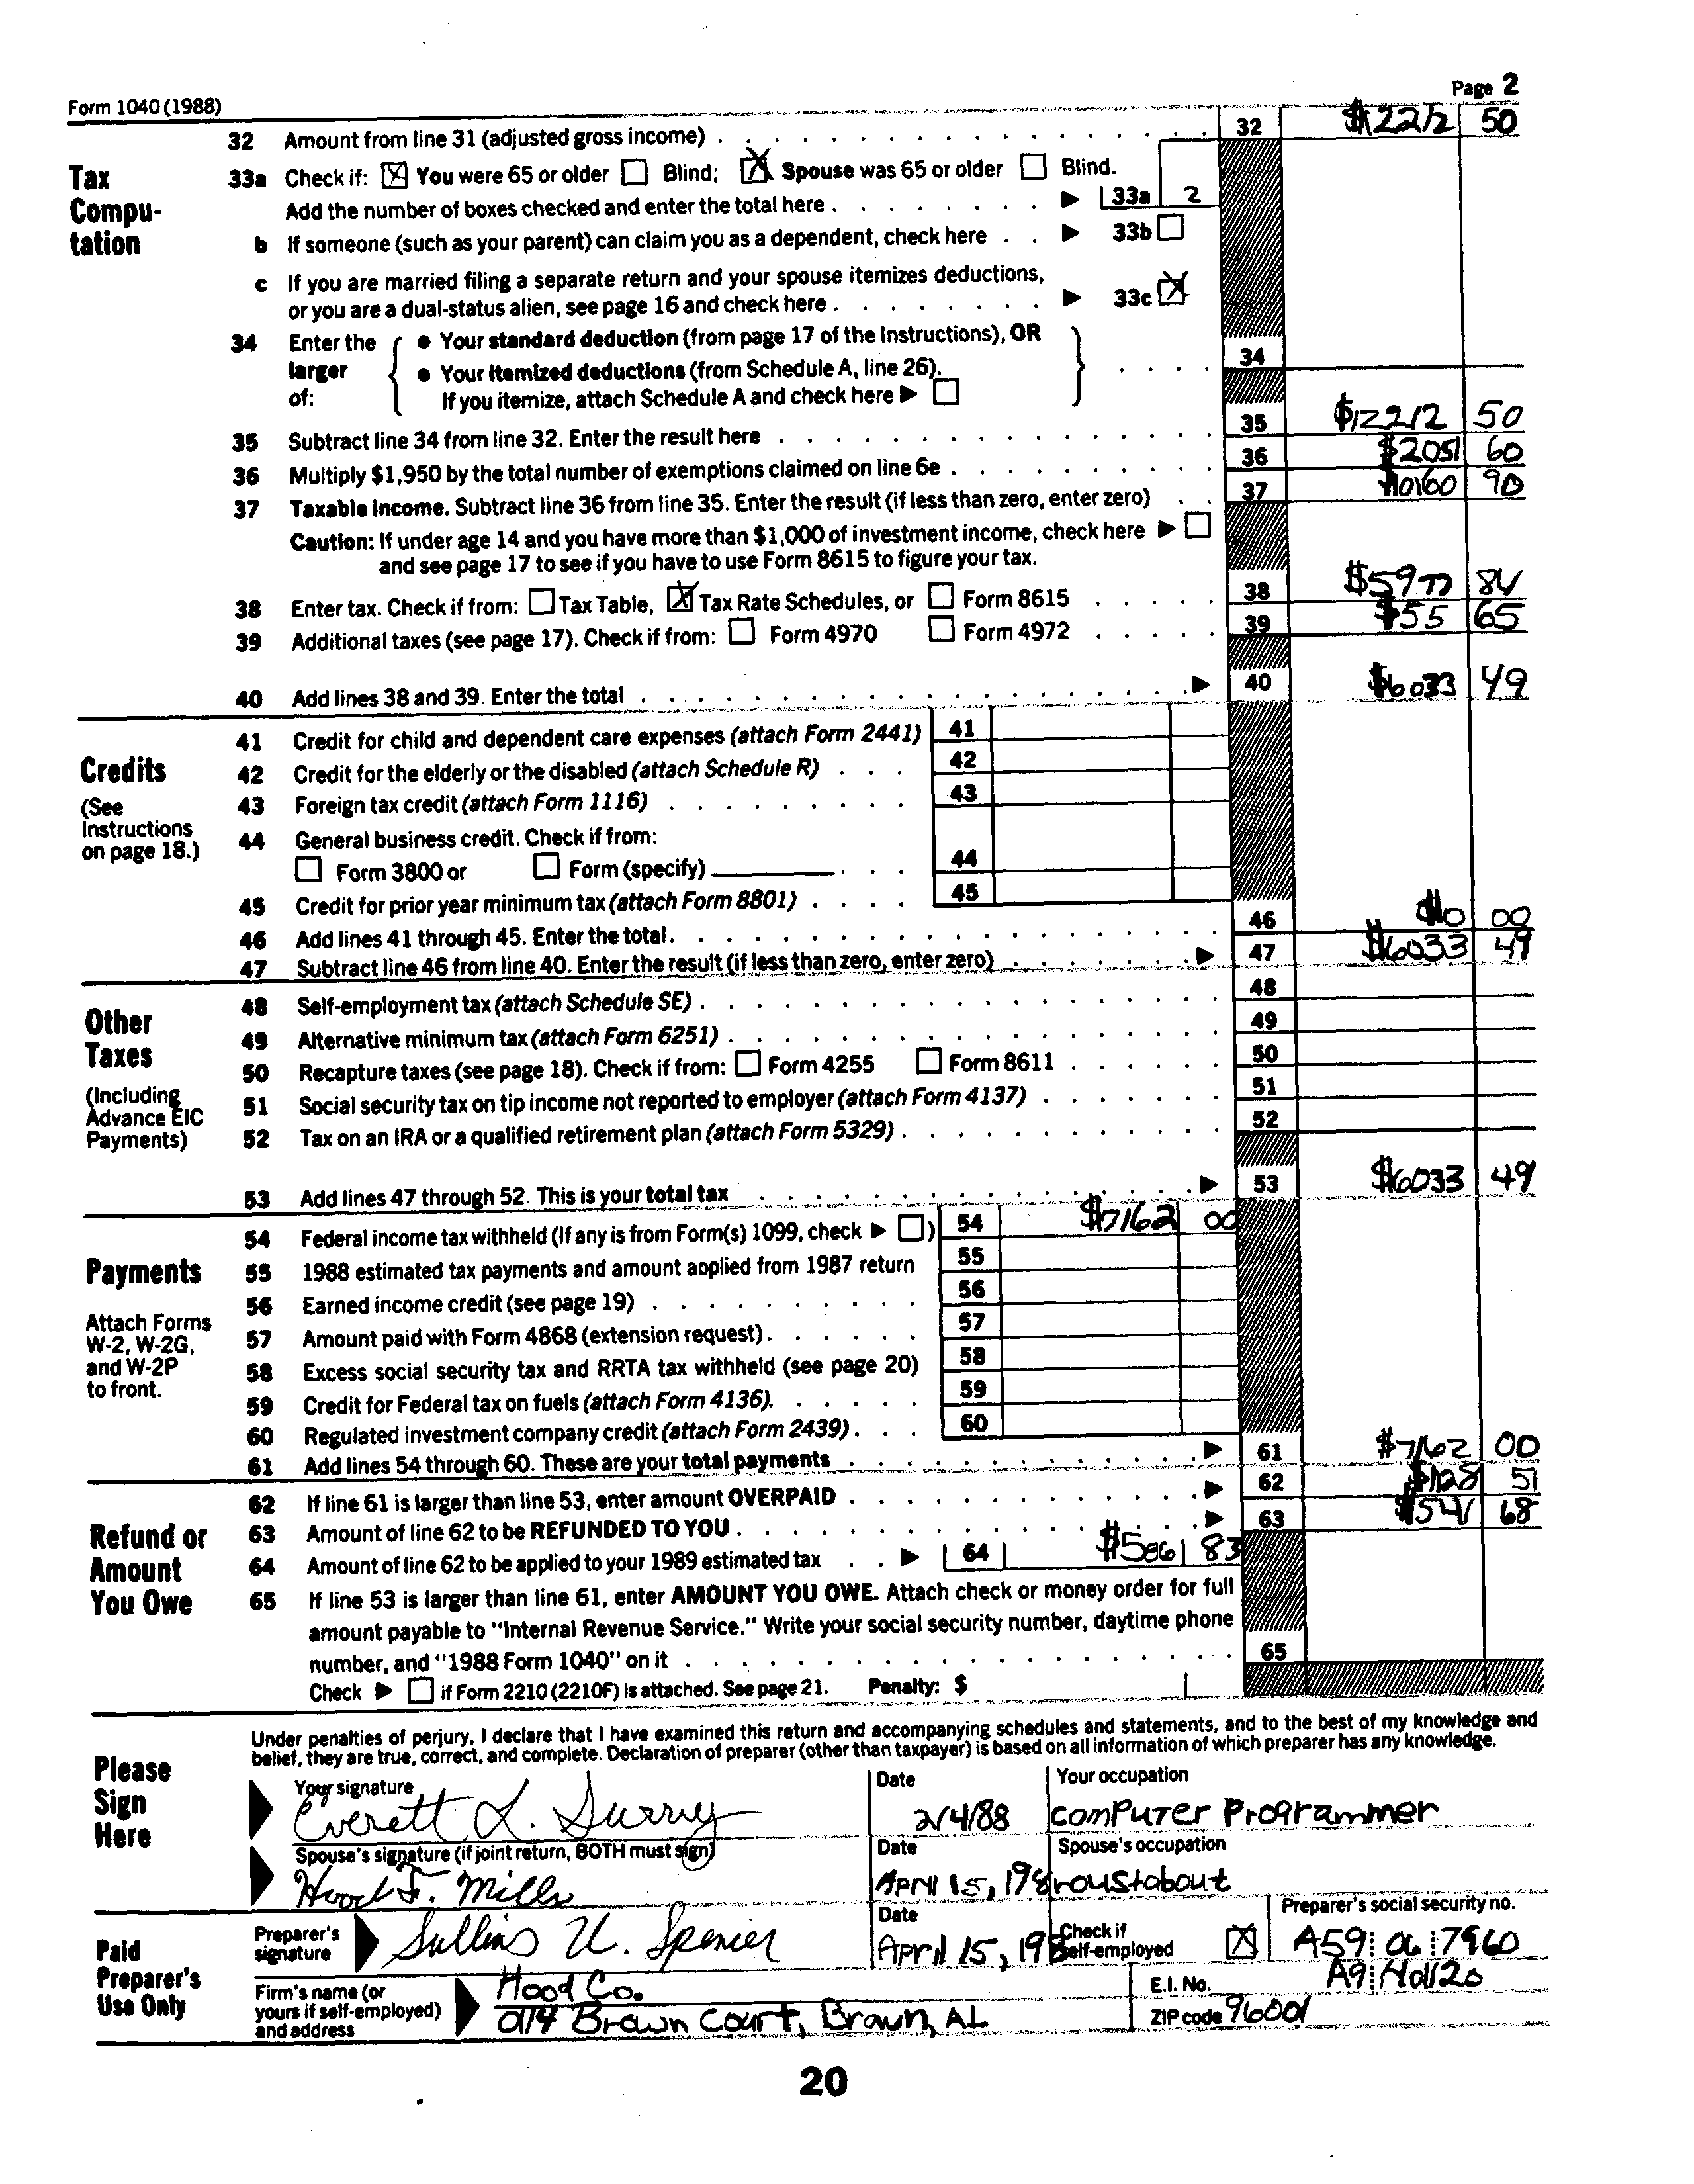 Form 1040 (1988)
Page 2
Tax Compu-
tation
32 Amount from line 31 (adjusted gross income) 32 $12212 50
33a Check if: ☒ You were 65 or older ☐ Blind; ☒ Spouse was 65 or older ☐ Blind.
Add the number of boxes checked and enter the total here ▶ 33a 2
b If someone (such as your parent) can claim you as a dependent, check here ▶ 33b ☐
c If you are married filing a separate return and your spouse itemizes deductions,
or you are a dual-status alien, see page 16 and check here ▶ 33c ☒
34 Enter the larger of:
● Your standard deduction (from page 17 of the Instructions), OR
● Your itemized deductions (from Schedule A, line 26).
If you itemize, attach Schedule A and check here ▶ ☐
34
35 Subtract line 34 from line 32. Enter the result here 35 $12212 50
36 Multiply $1,950 by the total number of exemptions claimed on line 6e 36 $2051 60
37 Taxable income. Subtract line 36 from line 35. Enter the result (if less than zero, enter zero) 37 $10160 90
Caution: If under age 14 and you have more than $1,000 of investment income, check here ▶ ☐
and see page 17 to see if you have to use Form 8615 to figure your tax.
38 Enter tax. Check if from: ☐ Tax Table, ☒ Tax Rate Schedules, or ☐ Form 8615 38 $5977 84
39 Additional taxes (see page 17). Check if from: ☐ Form 4970 ☐ Form 4972 39 $55 65
40 Add lines 38 and 39. Enter the total ▶ 40 $6033 49
Credits
(See Instructions on page 18.)
41 Credit for child and dependent care expenses (attach Form 2441) 41
42 Credit for the elderly or the disabled (attach Schedule R) 42
43 Foreign tax credit (attach Form 1116) 43
44 General business credit. Check if from:
☐ Form 3800 or ☐ Form (specify) 44
45 Credit for prior year minimum tax (attach Form 8801) 45
46 Add lines 41 through 45. Enter the total. 46 $0 00
47 Subtract line 46 from line 40. Enter the result (if less than zero, enter zero) ▶ 47 $6033 49
Other Taxes
(Including Advance EIC Payments)
48 Self-employment tax (attach Schedule SE) 48
49 Alternative minimum tax (attach Form 6251) 49
50 Recapture taxes (see page 18). Check if from: ☐ Form 4255 ☐ Form 8611 50
51 Social security tax on tip income not reported to employer (attach Form 4137) 51
52 Tax on an IRA or a qualified retirement plan (attach Form 5329) 52
53 Add lines 47 through 52. This is your total tax ▶ 53 $6033 49
Payments
Attach Forms W-2, W-2G, and W-2P to front.
54 Federal income tax withheld (If any is from Form(s) 1099, check ▶ ☐) 54 $7162 00
55 1988 estimated tax payments and amount applied from 1987 return 55
56 Earned income credit (see page 19) 56
57 Amount paid with Form 4868 (extension request) 57
58 Excess social security tax and RRTA tax withheld (see page 20) 58
59 Credit for Federal tax on fuels (attach Form 4136) 59
60 Regulated investment company credit (attach Form 2439) 60
61 Add lines 54 through 60. These are your total payments ▶ 61 $7162 00
Refund or Amount You Owe
62 If line 61 is larger than line 53, enter amount OVERPAID ▶ 62 $1128 51
63 Amount of line 62 to be REFUNDED TO YOU ▶ 63 $541 68
64 Amount of line 62 to be applied to your 1989 estimated tax ▶ 64 $586 83
65 If line 53 is larger than line 61, enter AMOUNT YOU OWE. Attach check or money order for full
amount payable to "Internal Revenue Service." Write your social security number, daytime phone
number, and "1988 Form 1040" on it 65
Check ▶ ☐ if Form 2210 (2210F) is attached. See page 21. Penalty: $
Please Sign Here
Under penalties of perjury, I declare that I have examined this return and accompanying schedules and statements, and to the best of my knowledge and
belief, they are true, correct, and complete. Declaration of preparer (other than taxpayer) is based on all information of which preparer has any knowledge.
Your signature Date Your occupation
Everett L. Surry 2/4/88 computer Programmer
Spouse's signature (if joint return, BOTH must sign) Date Spouse's occupation
Hood F. Mills April 15, 198 roustabout
Paid Preparer's Use Only
Preparer's signature Sullins U. Spenier Date April 15, 198 Check if self-employed ☒ Preparer's social security no. A59 06 7960
Firm's name (or yours if self-employed) and address Hood Co. E.I. No.
0114 Brown Court, Brawn, AL ZIP code 96001
20